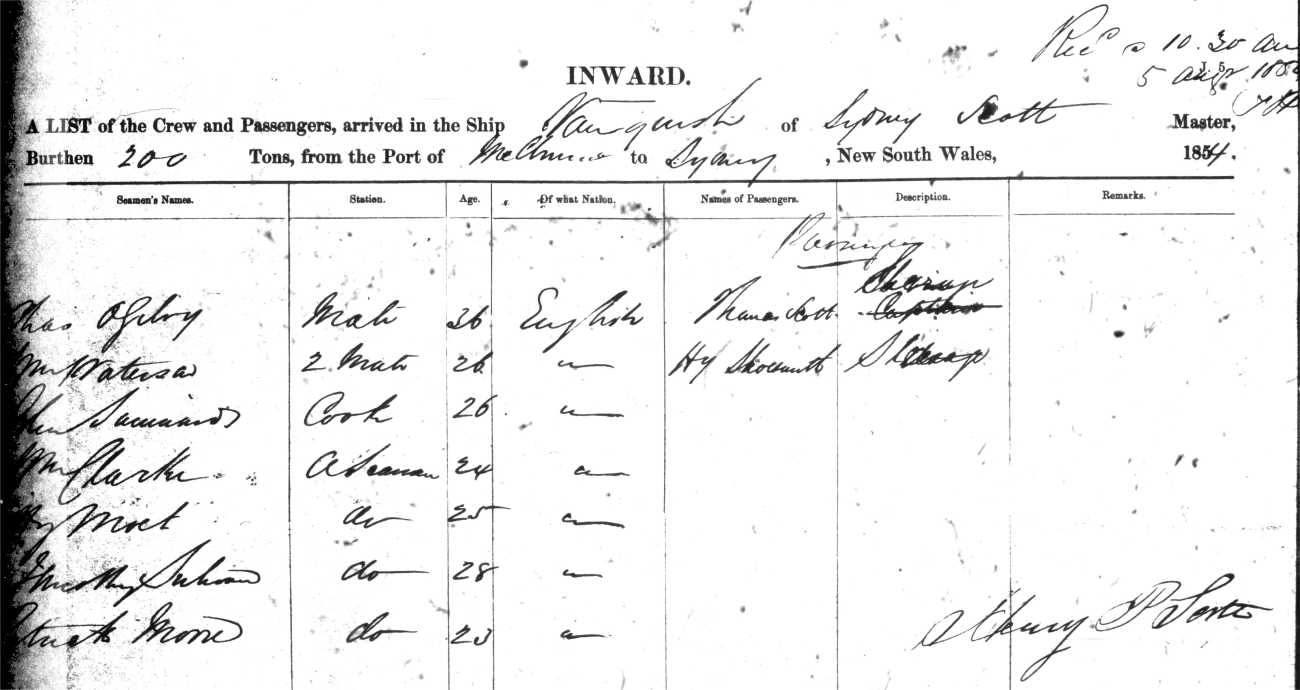 Rec^d 10.30 am
5 Aug
INWARD.
A LIST of the Crew and Passengers, arrived in the Ship Vanquish of Sydney Scott Master,
Burthen 200 Tons, from the Port of to Sydney, New South Wales, 1854.
Seamen's Names. Station. Age. Of what Nation. Names of Passengers. Description. Remarks.
Passengers
Steerage
Thos Ogilvy Mate 36 English Thomas Scott Captain
Wm Paterson 2 Mate 26 " Hy Shoesmith Steerage
Cook 26 "
Wm Clarke A Seaman 24 "
Hy Moet do 25 "
Timothy Sulivan do 28 "
Patrick Moore do 23 "
Henry P Scott